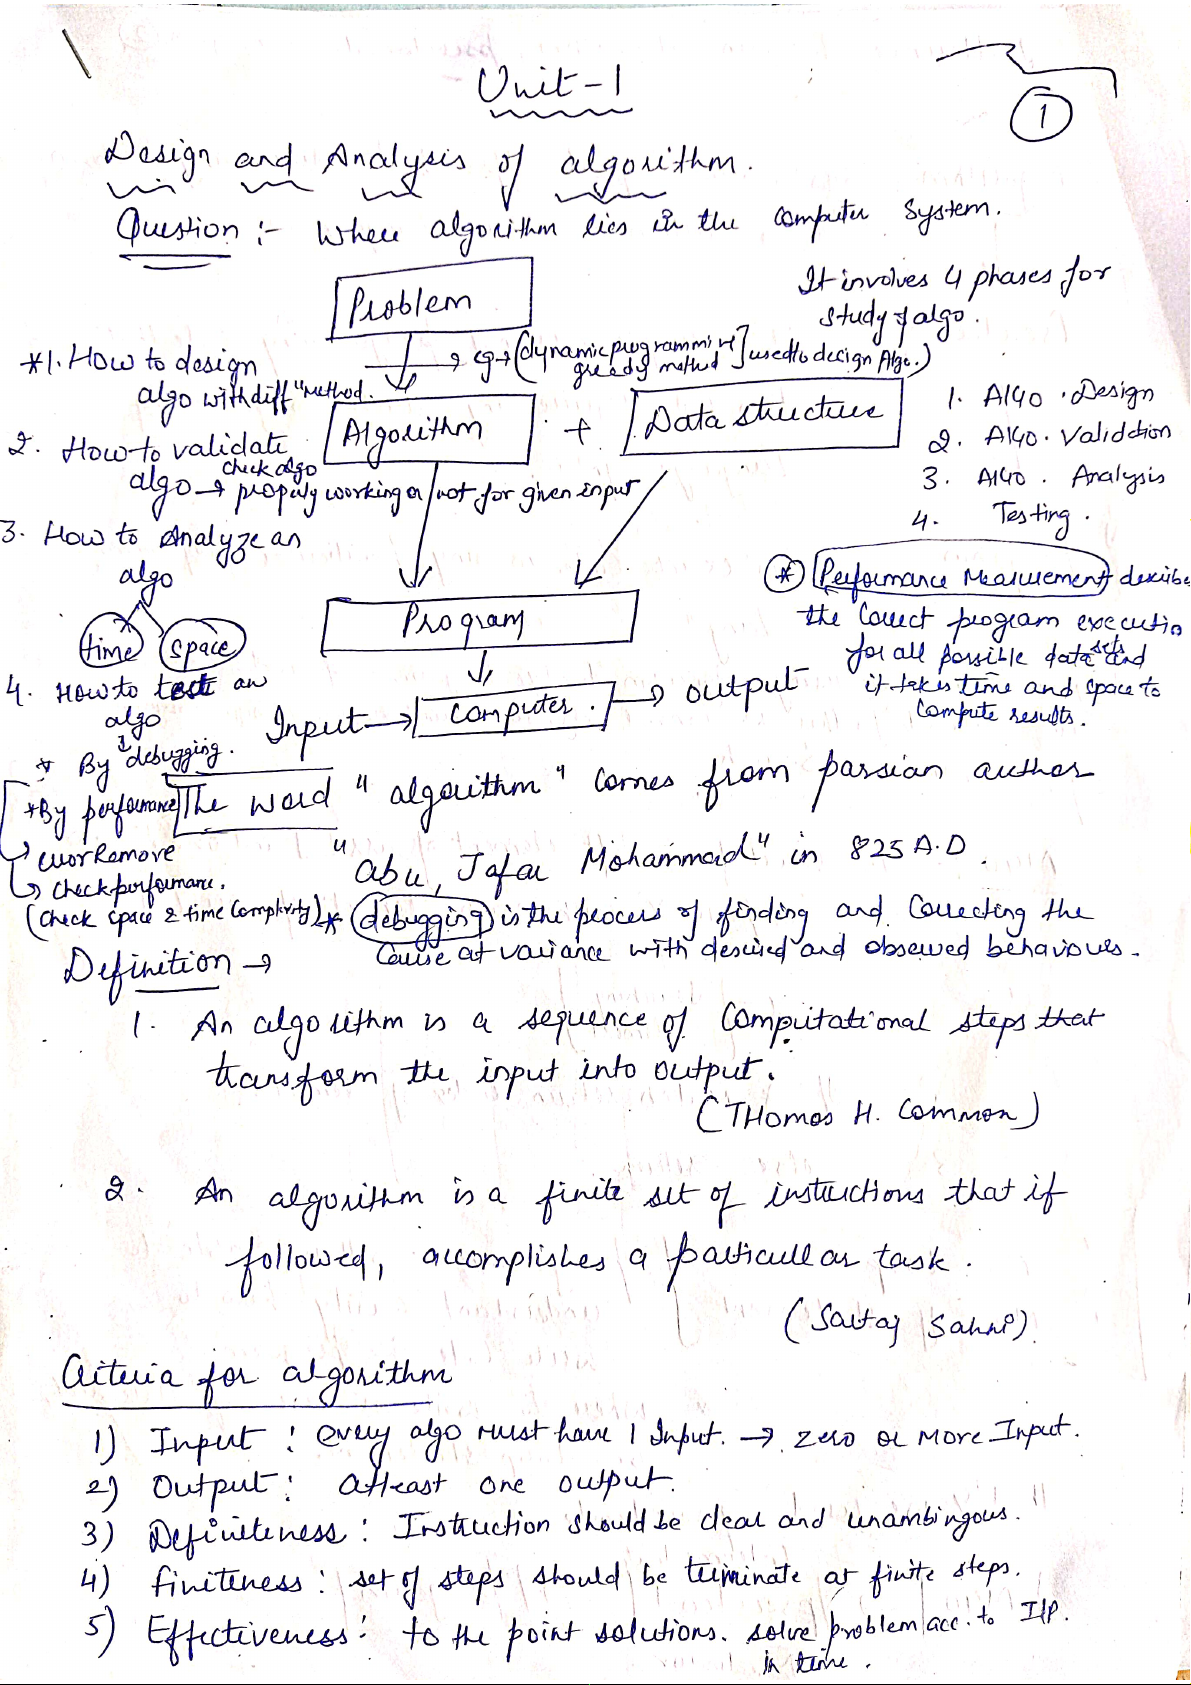 Unit-1
1
Design and Analysis of algorithm.
Question :- Where algorithm lies in the computer System.
Problem
It involves 4 phases for
study of algo.
*1. How to design
algo with diff "method.
→ eg → [dynamic programming
greedy method] used to design Algo.)
Algorithm + Data structure
1. Algo. Design
2. Algo. Validation
3. Algo. Analysis
4. Testing.
2. How to validate
algo → check algo
properly working or not for given input
3. How to Analyze an
algo
time space
Program
* Performance Measurement describe
the correct program executio
for all possible data sets and
it takes time and space to
compute results.
4. How to test an
algo
Input → Computer. → output
* By debugging.
*By performance
→ work remove
→ check performance.
(check space & time complexity)
The word "algorithm" comes from parsian author
"abu, Jafar Mohammad" in 825 A.D.
* debugging is the process of finding and correcting the
cause at variance with desired and observed behaviours.
Definition →
1. An algorithm is a sequence of Computational steps that
transform the input into output.
(THomas H. Common)
2. An algorithm is a finite set of instructions that if
followed, accomplishes a particullar task.
(Sartaj Sahni)
Criteria for algorithm
1) Input : every algo must have 1 Input. → zero or More Input.
2) Output : Atleast one output.
3) Definiteness : Instruction should be clear and unambingous.
4) finiteness : set of steps should be terminate at finite steps.
5) Effectiveness : to the point solutions. solve problem acc. to I/P.
in time.